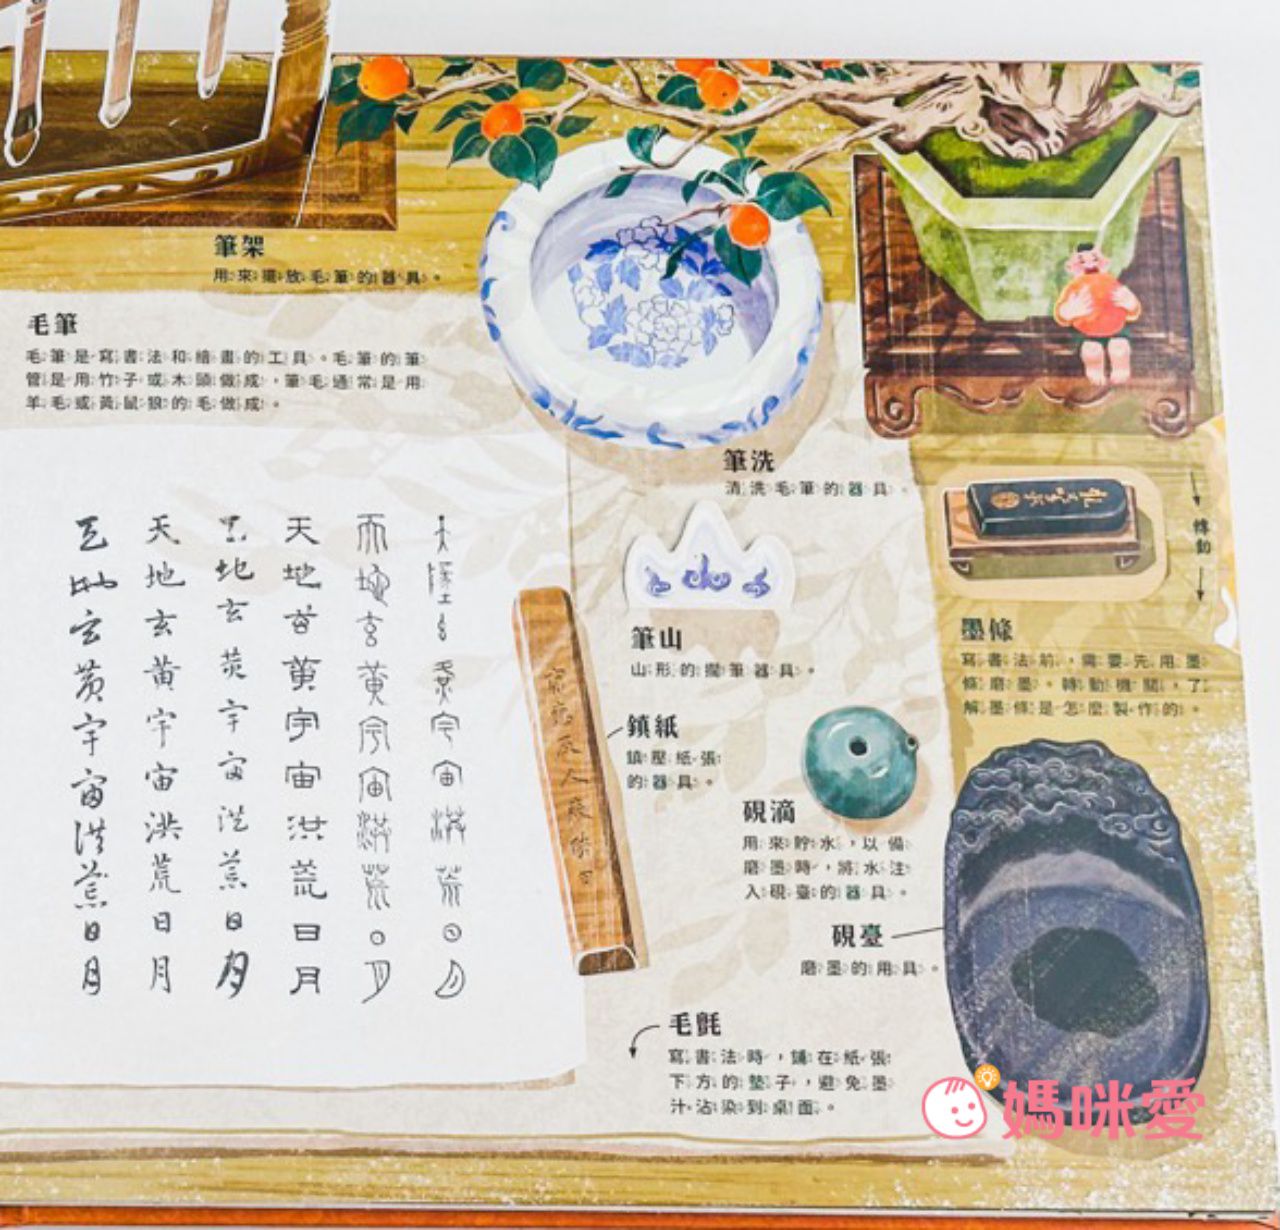 筆架
用來擺放毛筆的器具。
毛筆
毛筆是寫書法和繪畫的工具。毛筆的筆
管是用竹子或木頭做成，筆毛通常是用
羊毛或黃鼠狼的毛做成。
筆洗
清洗毛筆的器具。
轉動
墨條
寫書法前，需要先用墨
條磨墨。轉動機關，了
解墨條是怎麼製作的。
筆山
山形的擱筆器具。
鎮紙
鎮壓紙張
的器具。
硯滴
用來貯水，以備
磨墨時，將水注
入硯臺的器具。
硯臺
磨墨的用具。
毛氈
寫書法時，鋪在紙張
下方的墊子，避免墨
汁沾染到桌面。
天地玄黃宇宙洪荒日月
天地玄黃宇宙洪荒日月
天地玄黃宇宙洪荒日月
天地玄黃宇宙洪荒日月
天地玄黃宇宙洪荒日月
天地玄黃宇宙洪荒日月
媽咪愛